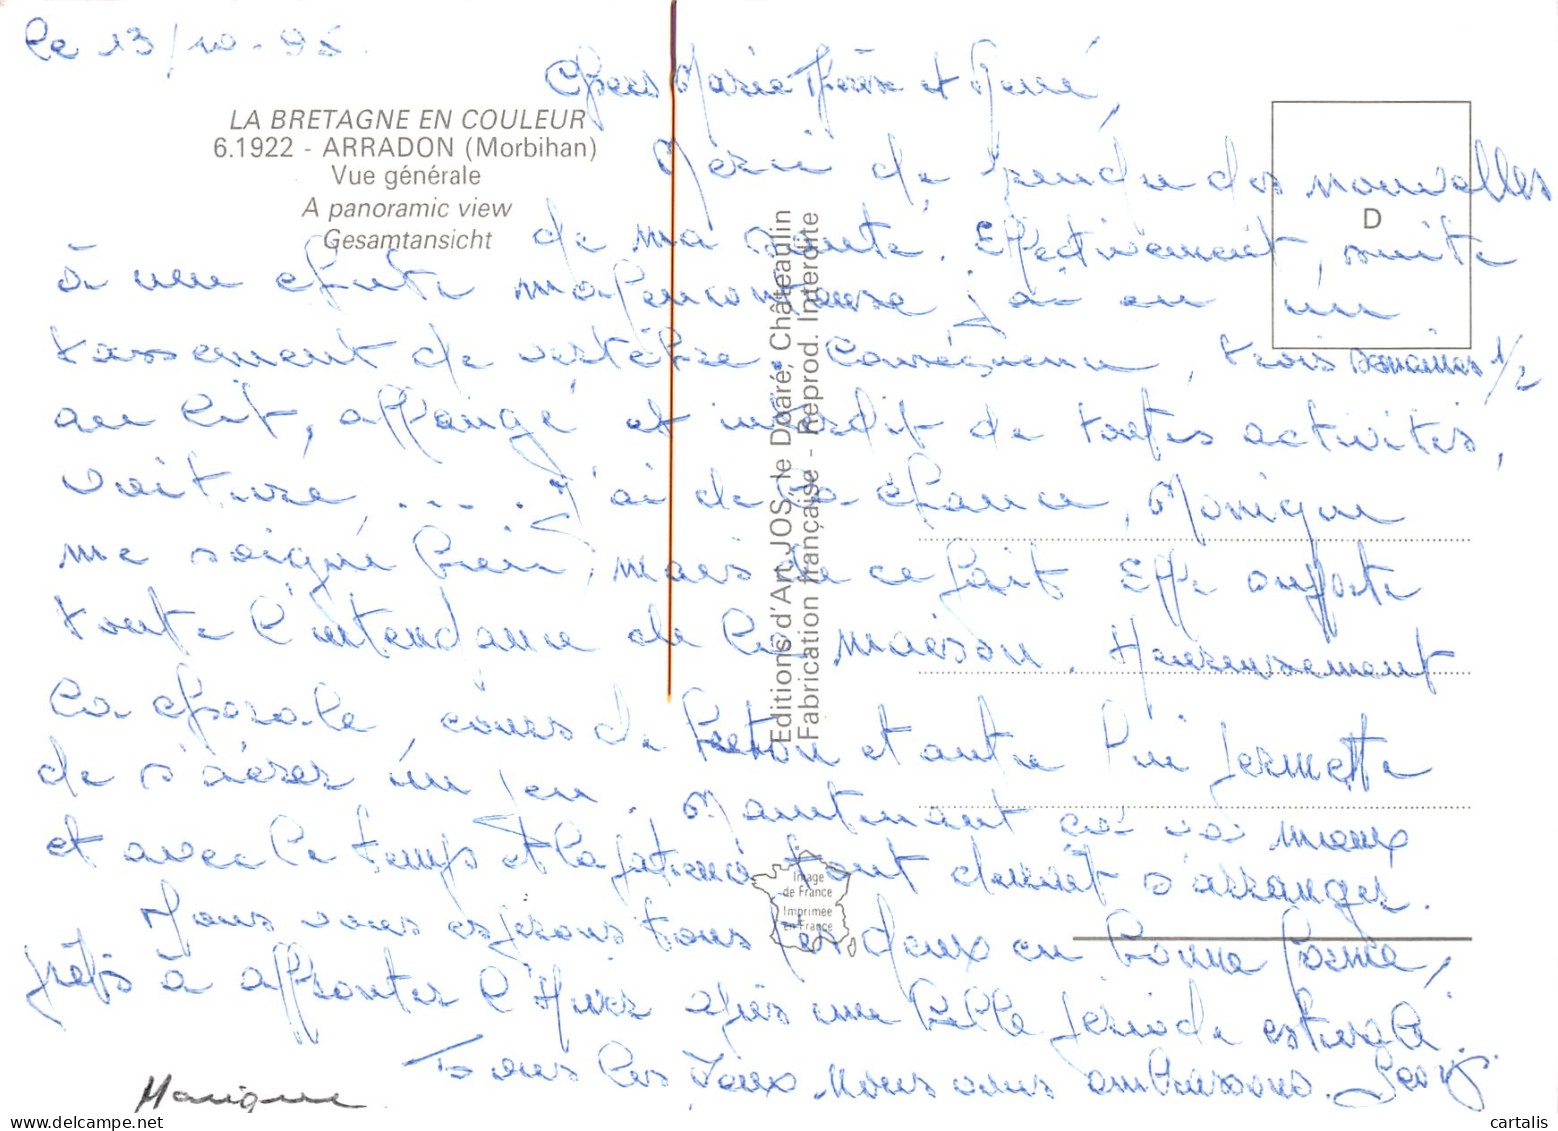 le 13/10-95.
Chers Marie Thérèse et René,
LA BRETAGNE EN COULEUR
6.1922 - ARRADON (Morbihan)
Vue générale
A panoramic view
Gesamtansicht
D
Merci de prendre des nouvelles
de ma santé. Effectivement, suite
à une chute malencontreuse j'ai eu un
tassement de vertèbre. Conséquence, trois semaines 1/2
au lit, allongé et interdit de toutes activités,
voiture, .... J'ai de la chance, Monique
me soigne bien, mais de ce fait Elle supporte
toute l'intendance de la maison. Heureusement
la chorale, cours de breton et autre lui permette
de s'aérer un peu. Maintenant ça va mieux
et avec le temps et la patience tout devrait s'arranger.
Nous vous espérons tous les deux en bonne forme,
prêts à affronter l'Hiver après une belle période estivale.
Tous les deux nous vous embrassons.
Monique
Editions d'Art JOS, le Doaré, Châteaulin
Fabrication française - Reprod. Interdite
Image
de France
Imprimée
en France
cartalis